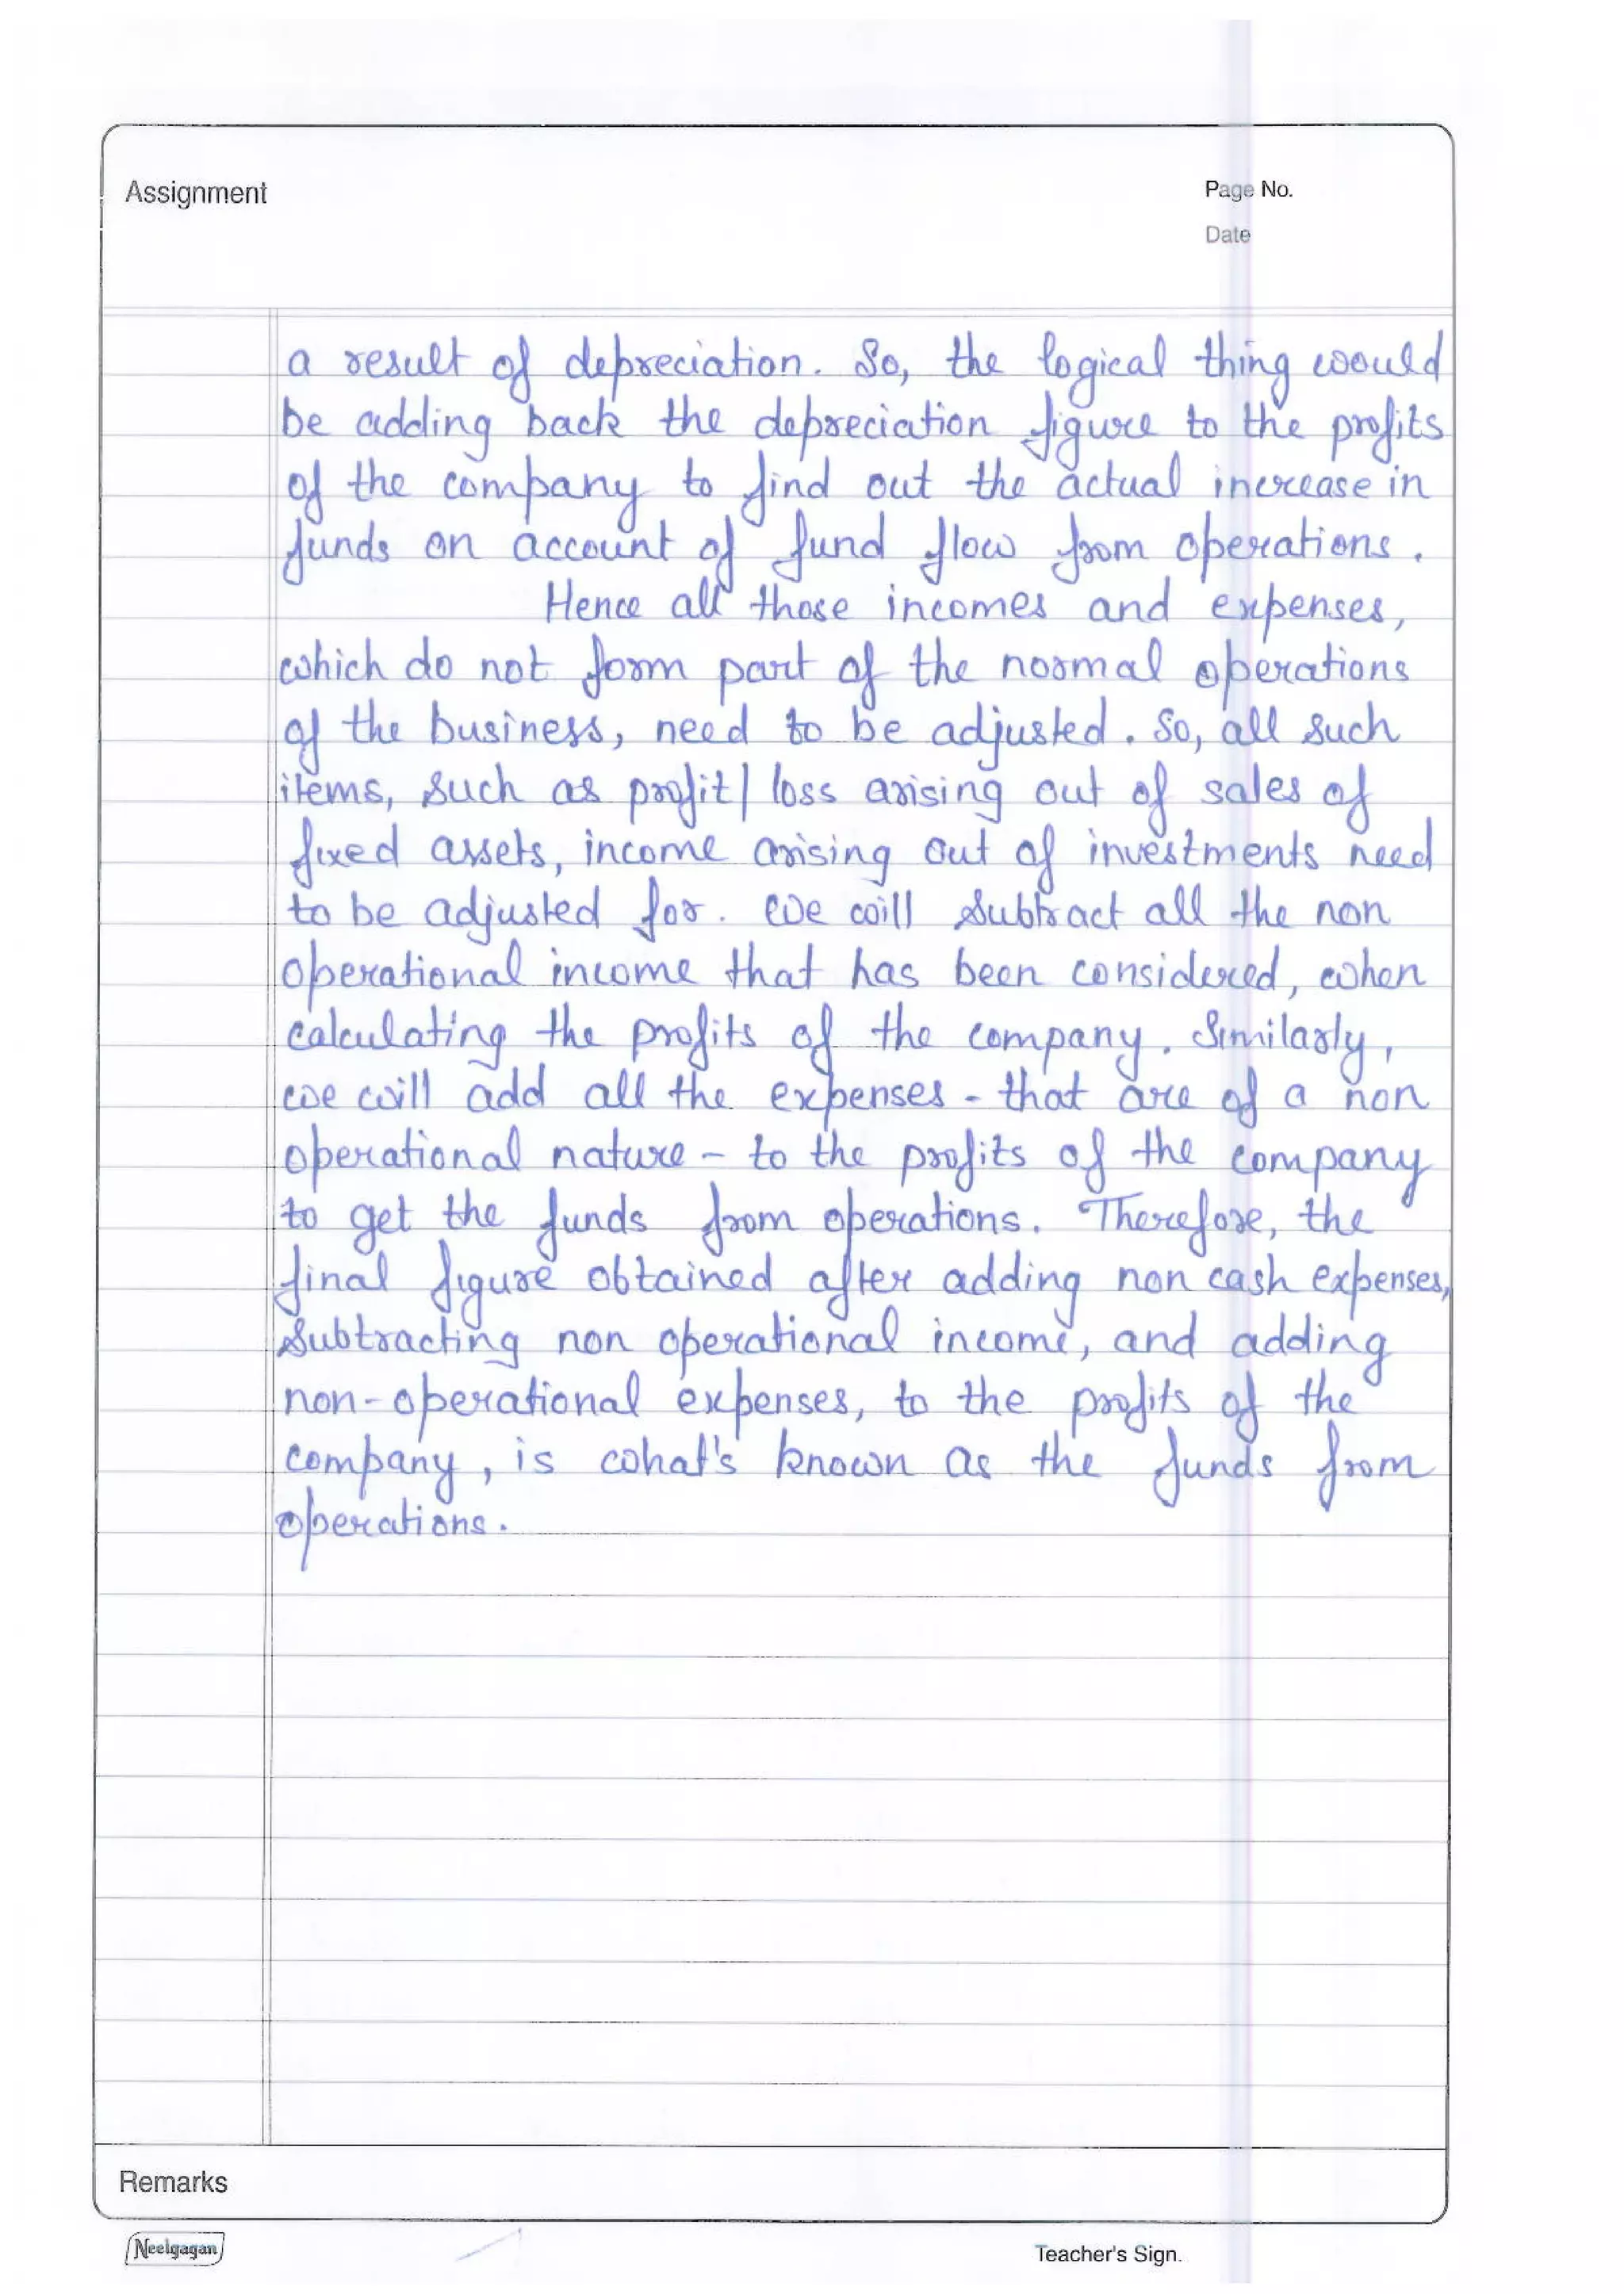 Assignment
Page No.
Date
a result of depreciation. So, the logical thing would
be adding back the depreciation figure to the profits
of the company to find out the actual increase in
funds on account of fund flow from operations.
Hence all those incomes and expenses,
which do not form part of the normal operations
of the business, need to be adjusted. So, all such
items, such as profit/loss arising out of sales of
fixed assets, income arising out of investments need
to be adjusted for. We will subtract all the non
operational income that has been considered, when
calculating the profits of the company. Similarly,
we will add all the expenses - that are of a non
operational nature - to the profits of the company
to get the funds from operations. Therefore, the
final figure obtained after adding non cash expenses,
subtracting non operational income, and adding
non-operational expenses, to the profits of the
company, is what's known as the funds from
operations.
Remarks
Neelgagan
Teacher's Sign.